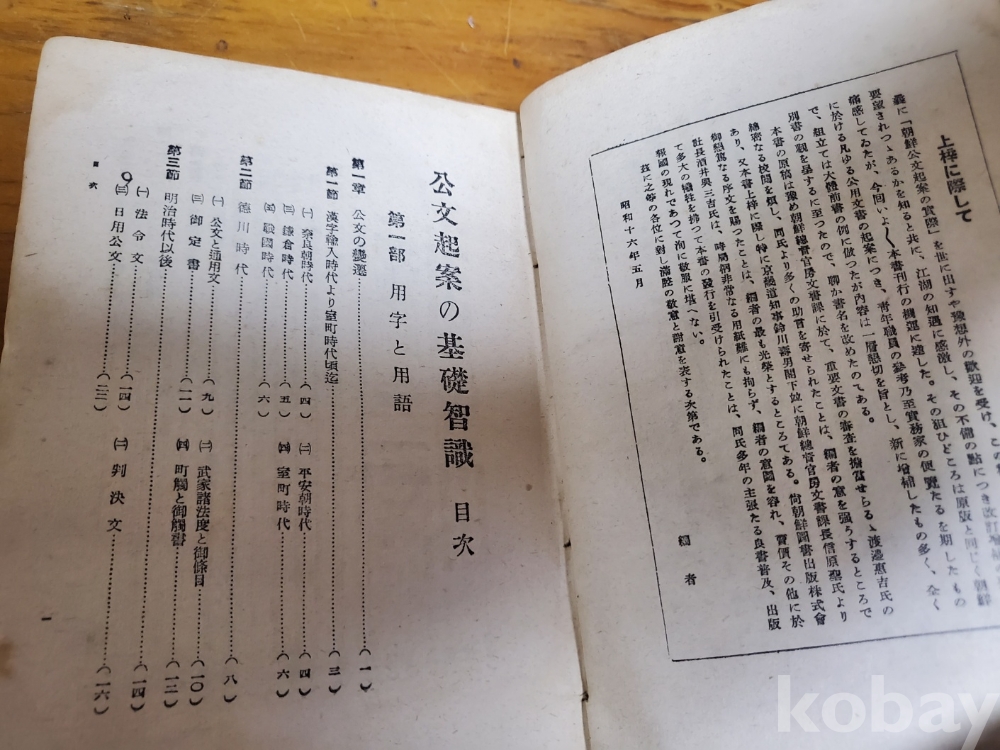 上梓に際して
曩に「朝鮮公文起案の實際」を世に出すや豫想外の歡迎を受け、この
要望されつゝあるかを知ると共に、江湖の知遇に感激し、その不備の點につき改訂
痛感してゐたが、今回いよ〳〵本書刊行の機運に達した。その狙ひどころは原版と同じく朝鮮
に於ける凡ゆる公用文書の起案につき、青年職員の參考乃至實務家の便覽たるを期したもの
で、組立ては大體前書の例に倣つたが内容は一層懇切を旨とし、新に增補したもの多く、全く
別書の觀を呈するに至つたので、聊か書名を改めたのである。
本書の原稿は豫め朝鮮總督官房文書課に於て、重要文書の審査を擔當せらるゝ渡邊惠吉氏の
綿密なる校閲を煩し、同氏より多くの助言を寄せられたことは、編者の意を强うするところで
あり、又本書上梓に際し特に京畿道知事鈴川壽男閣下竝に朝鮮總督官房文書課長信原聖氏より
御懇篤なる序文を賜つたことは、編者の最も光榮とするところである。尙朝鮮圖書出版株式會
社長酒井與三吉氏は、時局柄非常なる用紙難にも拘らず、編者の意圖を容れ、賣價その他に於
て多大の犧牲を拂つて本書の發行を引受けられたことは、同氏多年の主張たる良書普及、出版
報國の現れであつて洵に敬服に堪へない。
茲に之等の各位に對し滿腔の敬意と謝意を表する次第である。
昭和十六年五月
編者
公文起案の基礎智識 目次
第一部 用字と用語
第一章 公文の變遷……(一)
第一節 漢字輸入時代より室町時代頃迄……(三)
㈠ 奈良朝時代……(四) ㈡ 平安朝時代……(四)
㈢ 鎌倉時代……(五) ㈣ 室町時代……(六)
㈤ 戰國時代……(六)
第二節 德川時代……(八)
㈠ 公文と通用文……(九) ㈡ 武家諸法度と御條目……(一〇)
㈢ 御定書……(一一) ㈣ 町觸と御觸書……(一二)
第三節 明治時代以後
㈠ 法令文……(一四) ㈡ 判決文……(一四)
㈢ 日用公文……(二三)……(一六)
目次
一
kobay